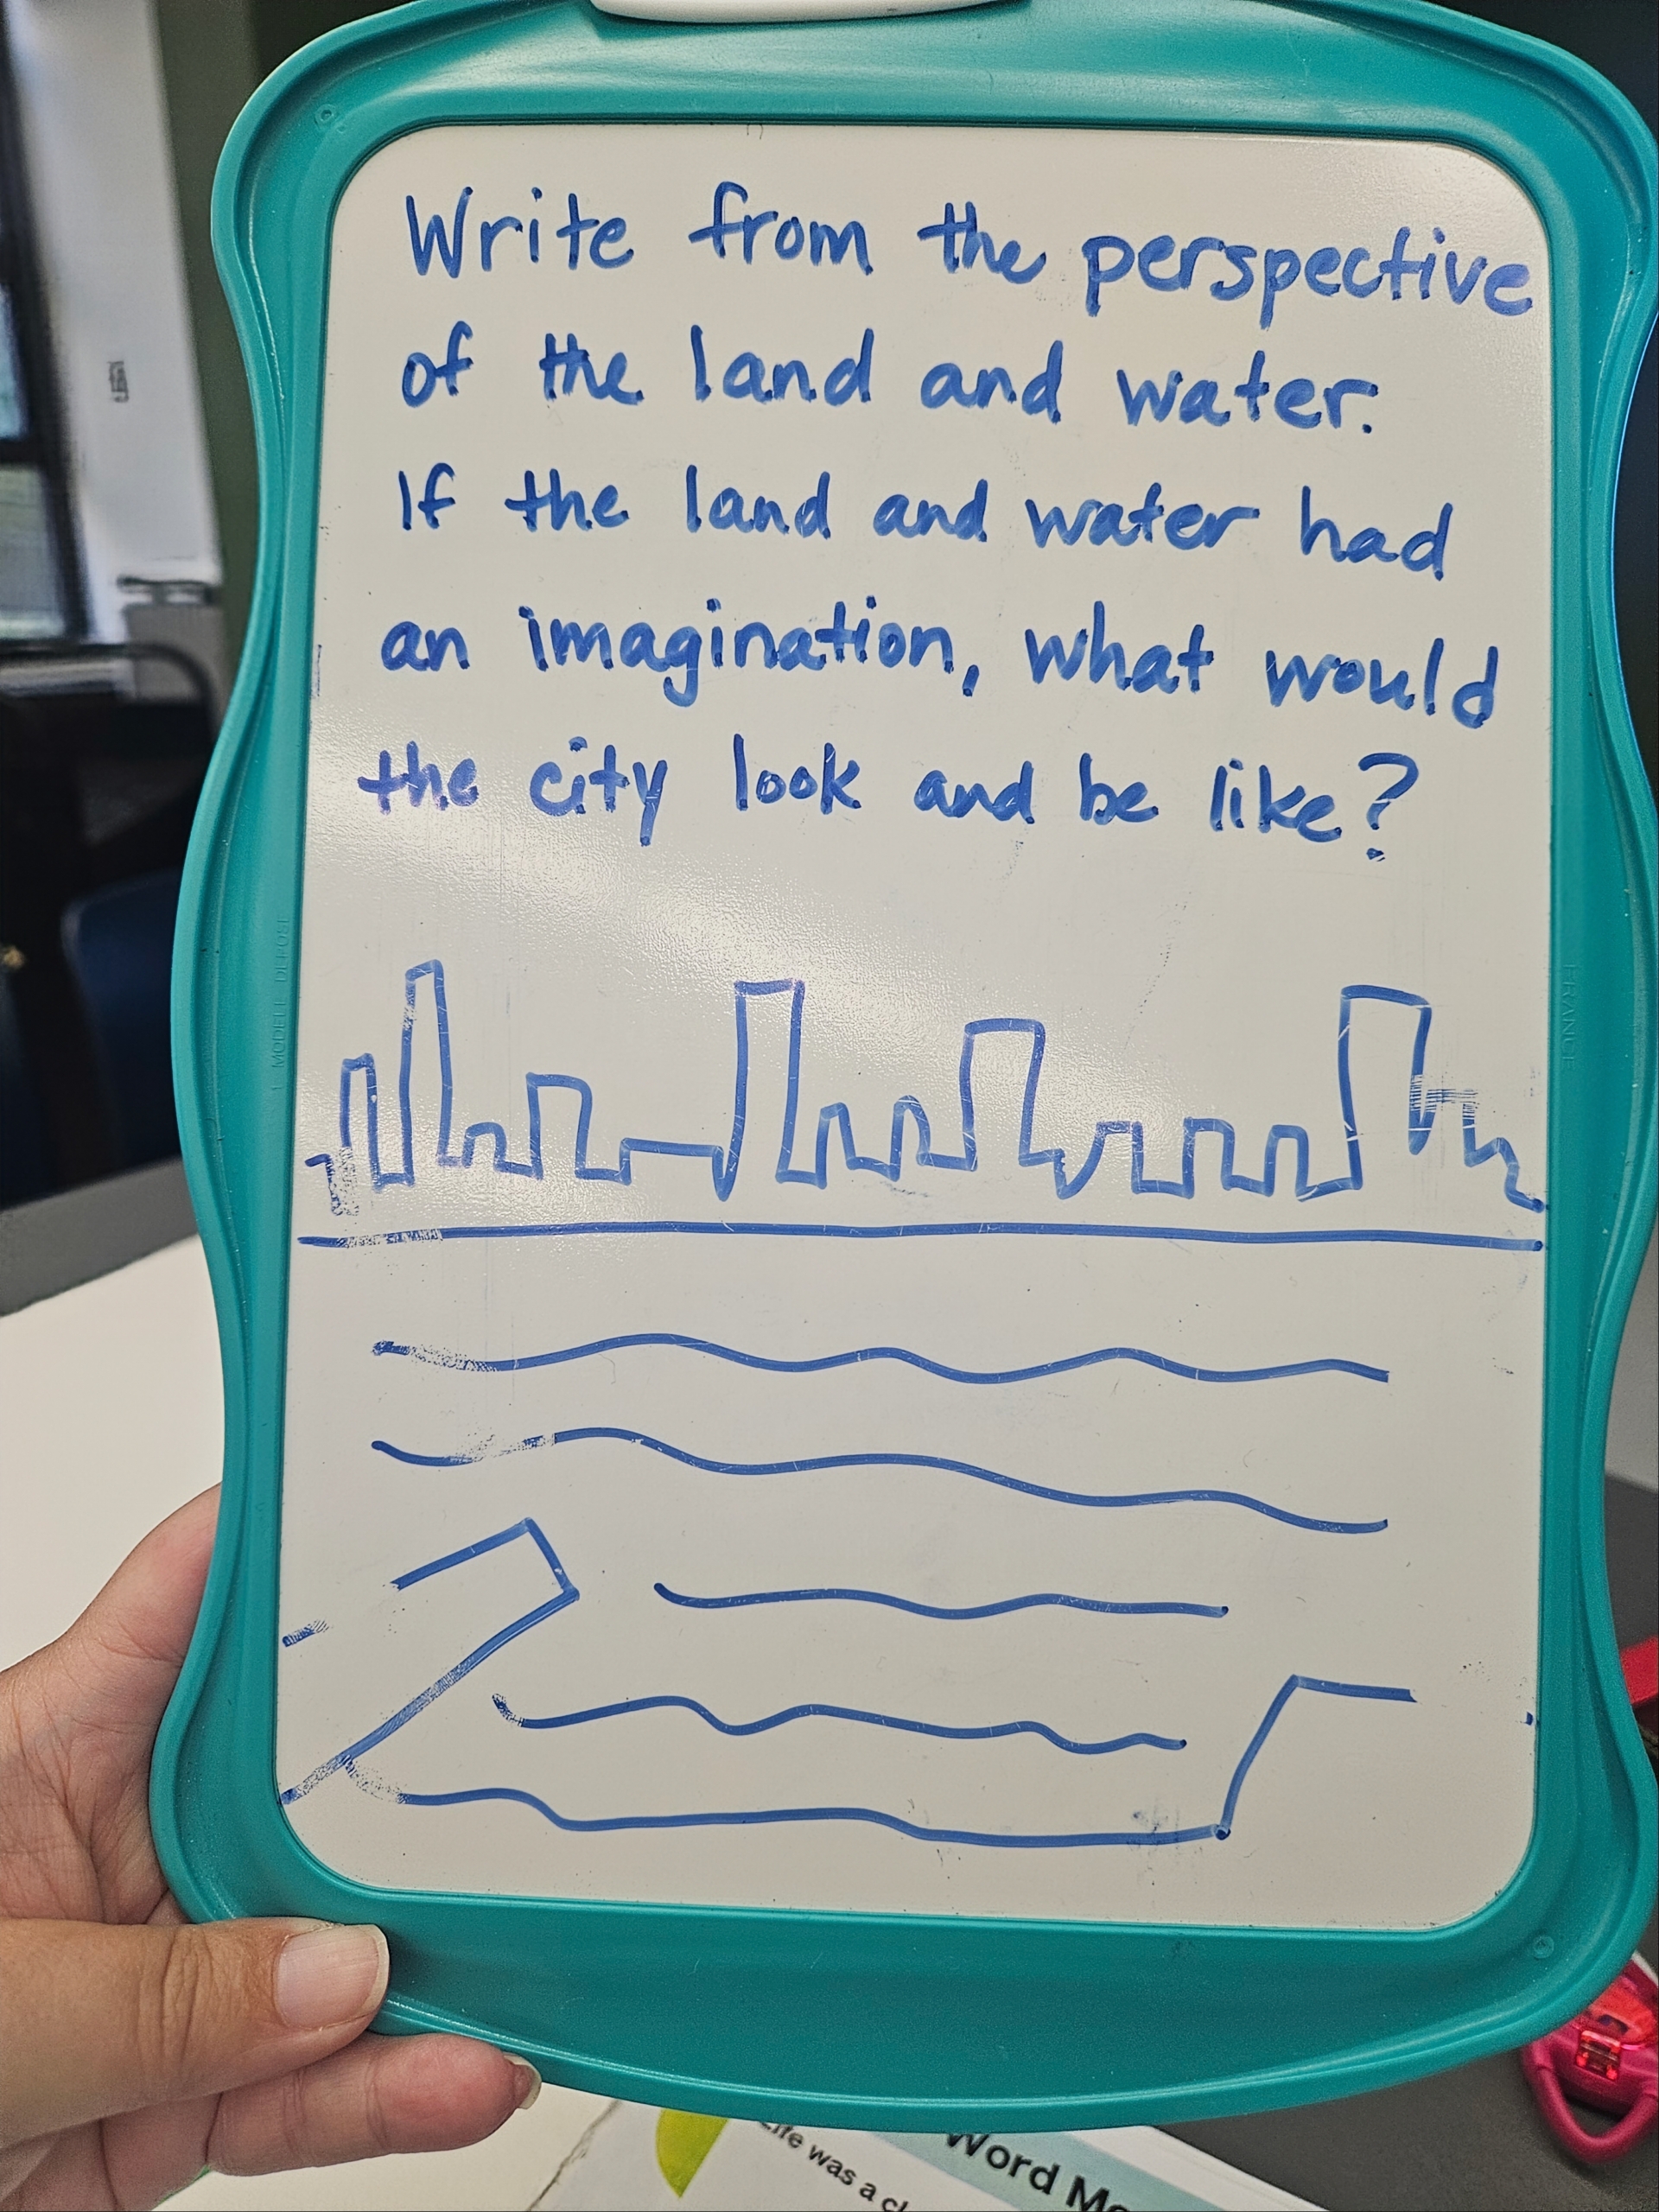 Write from the perspective
of the land and water.
If the land and water had
an imagination, what would
the city look and be like?
MODÈLE DÉPOSÉ
FRANCE
Word
Life was a